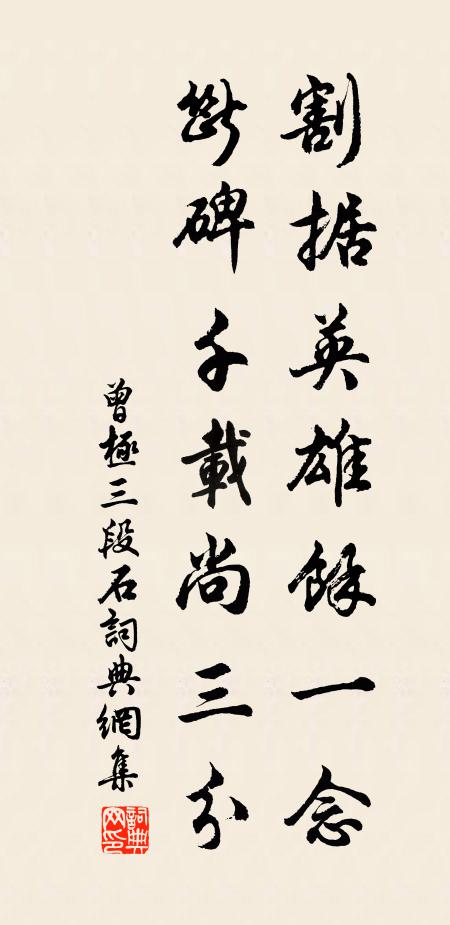 割据英雄餘一念
斷碑千載尚三分
曾極三段石詞典網集
詞典網印